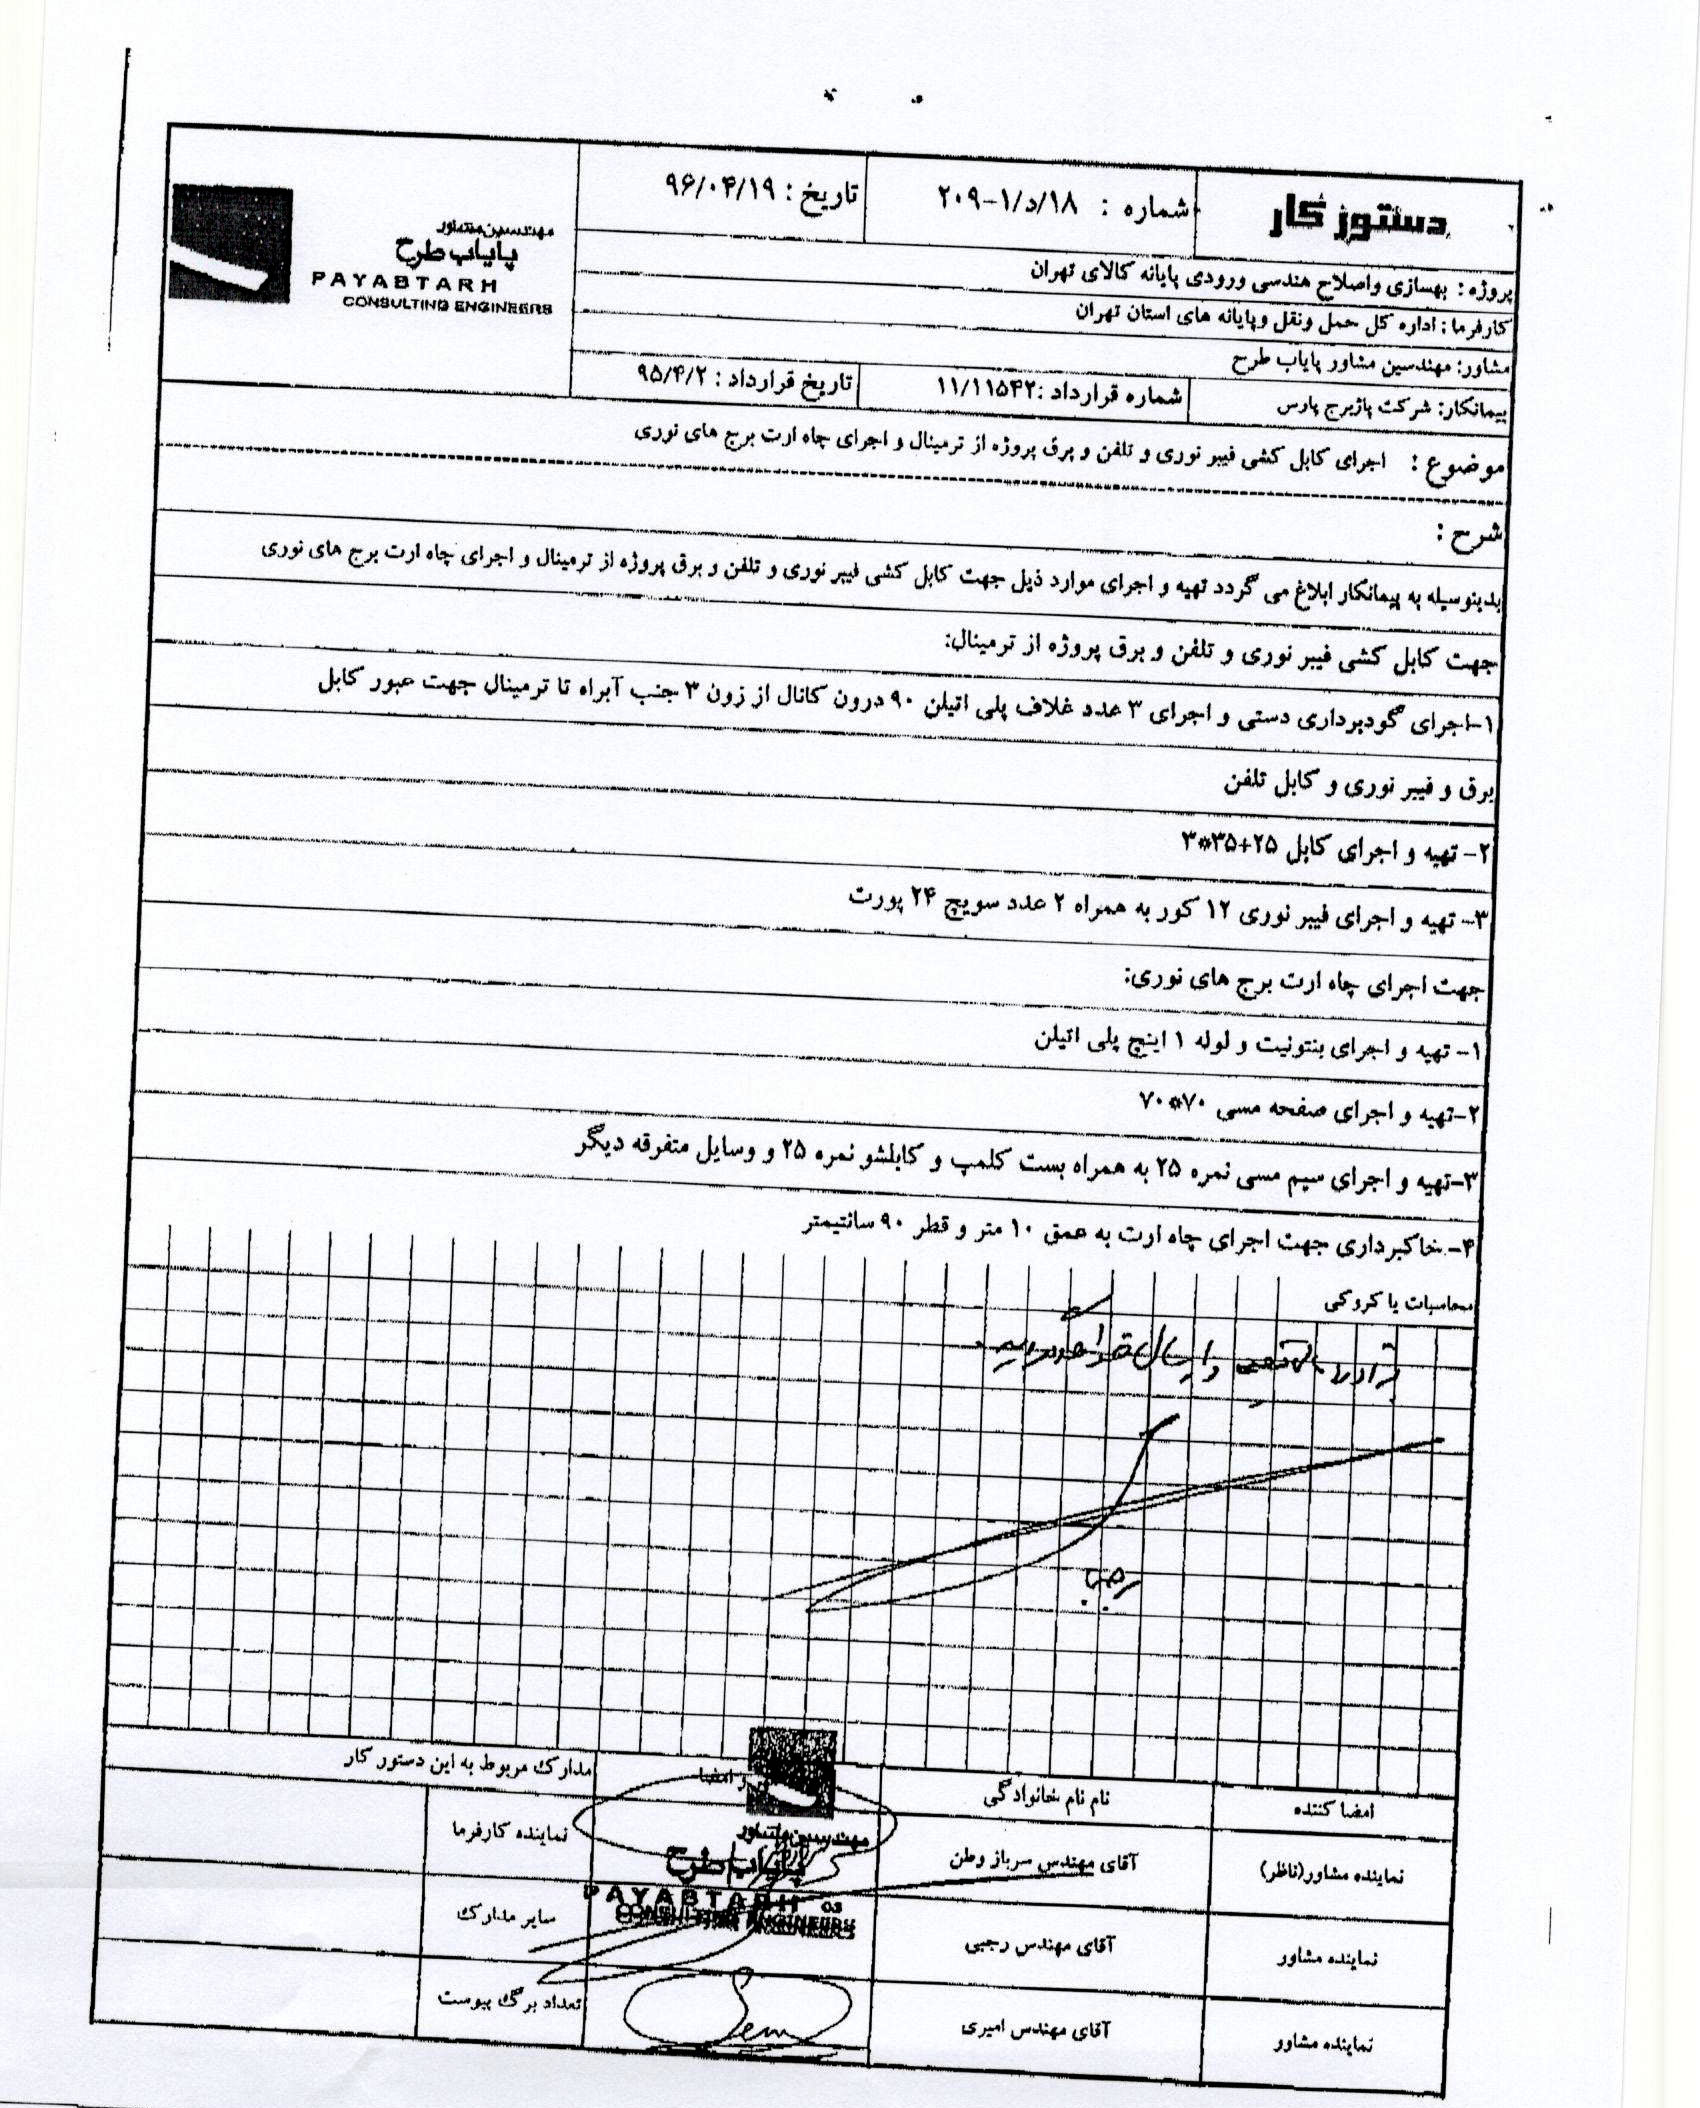 دستور کار
شماره : ۱۸/د/۱-۲۰۹
تاریخ : ۹۶/۰۴/۱۹
مهندسین مشاور
پایاب طرح
PAYABTARH
CONSULTING ENGINEERS
پروژه : بهسازی واصلاح هندسی ورودی پایانه کالای تهران
کارفرما : اداره کل حمل ونقل وپایانه های استان تهران
مشاور: مهندسین مشاور پایاب طرح
پیمانکار: شرکت پاژبرج پارس
شماره قرارداد :۱۱/۱۱۵۴۲
تاریخ قرارداد : ۹۵/۴/۲
موضوع : اجرای کابل کشی فیبر نوری و تلفن و برق پروژه از ترمینال و اجرای چاه ارت برج های نوری
شرح :
بدینوسیله به پیمانکار ابلاغ می گردد تهیه و اجرای موارد ذیل جهت کابل کشی فیبر نوری و تلفن و برق پروژه از ترمینال و اجرای چاه ارت برج های نوری
جهت کابل کشی فیبر نوری و تلفن و برق پروژه از ترمینال:
۱-اجرای گودبرداری دستی و اجرای ۳ عدد غلاف پلی اتیلن ۹۰ درون کانال از زون ۳ جنب آبراه تا ترمینال جهت عبور کابل
برق و فیبر نوری و کابل تلفن
۲- تهیه و اجرای کابل ۲۵+۳۵*۳
۳- تهیه و اجرای فیبر نوری ۱۲ کور به همراه ۲ عدد سویچ ۲۴ پورت
جهت اجرای چاه ارت برج های نوری:
۱- تهیه و اجرای بنتونیت و لوله ۱ اینچ پلی اتیلن
۲-تهیه و اجرای صفحه مسی ۷۰*۷۰
۳-تهیه و اجرای سیم مسی نمره ۲۵ به همراه بست کلمپ و کابلشو نمره ۲۵ و وسایل متفرقه دیگر
۴- خاکبرداری جهت اجرای چاه ارت به عمق ۱۰ متر و قطر ۹۰ سانتیمتر
محاسبات یا کروکی
امضا کننده
نام نام خانوادگی
و امضا
مدارک مربوط به این دستور کار
نماینده مشاور(ناظر)
آقای مهندس سرباز وطن
نماینده کارفرما
مهندسین مشاور
پایاب طرح
PAYABTARH 03
CONSULTING ENGINEERS
نماینده مشاور
آقای مهندس رجبی
سایر مدارک
نماینده مشاور
آقای مهندس امیری
تعداد برگ پیوست